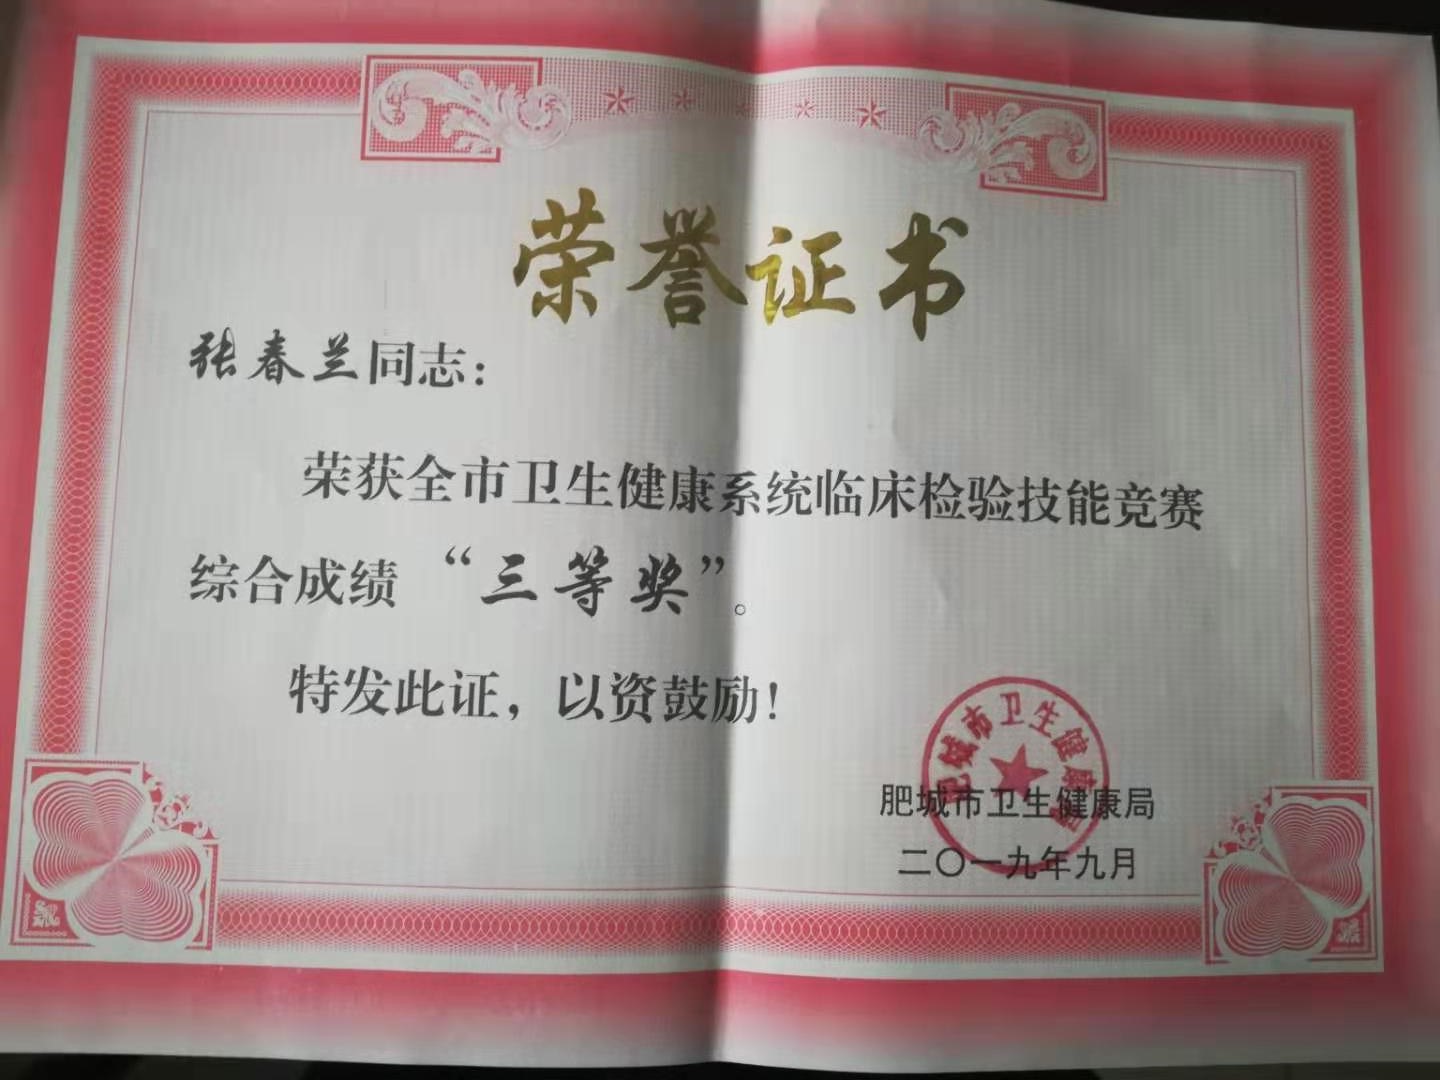 荣誉证书
张春兰同志：
荣获全市卫生健康系统临床检验技能竞赛
综合成绩“三等奖”。
特发此证，以资鼓励！
肥城市卫生健康局
肥城市卫生健康局
二〇一九年九月